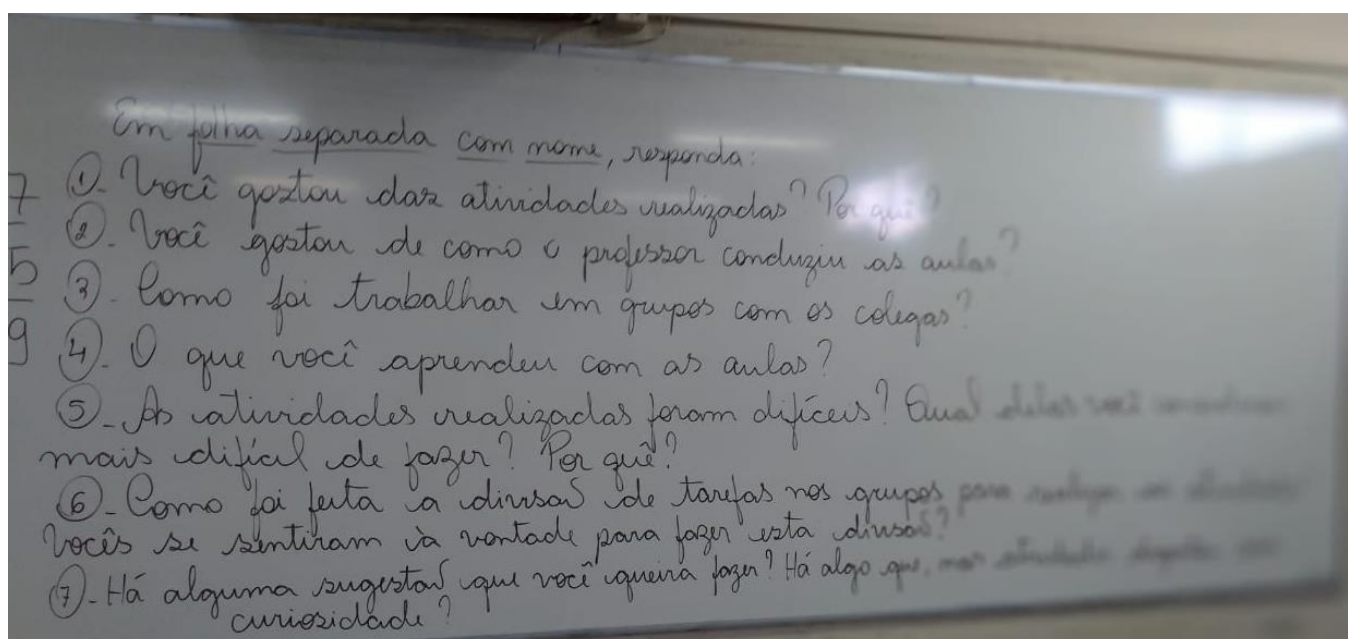 Em folha separada com nome, responda:
7 ①. Você gostou das atividades realizadas? Por quê?
②. Você gostou de como o professor conduziu as aulas?
5 ③. Como foi trabalhar em grupos com os colegas?
9 ④. O que você aprendeu com as aulas?
⑤- As atividades realizadas foram difíceis? Qual delas você
mais difícil de fazer? Por quê?
⑥- Como foi feita a divisão de tarefas nos grupos para
Vocês se sentiram à vontade para fazer esta divisão?
⑦- Há alguma sugestão que você queira fazer? Há algo que, nas
curiosidade?